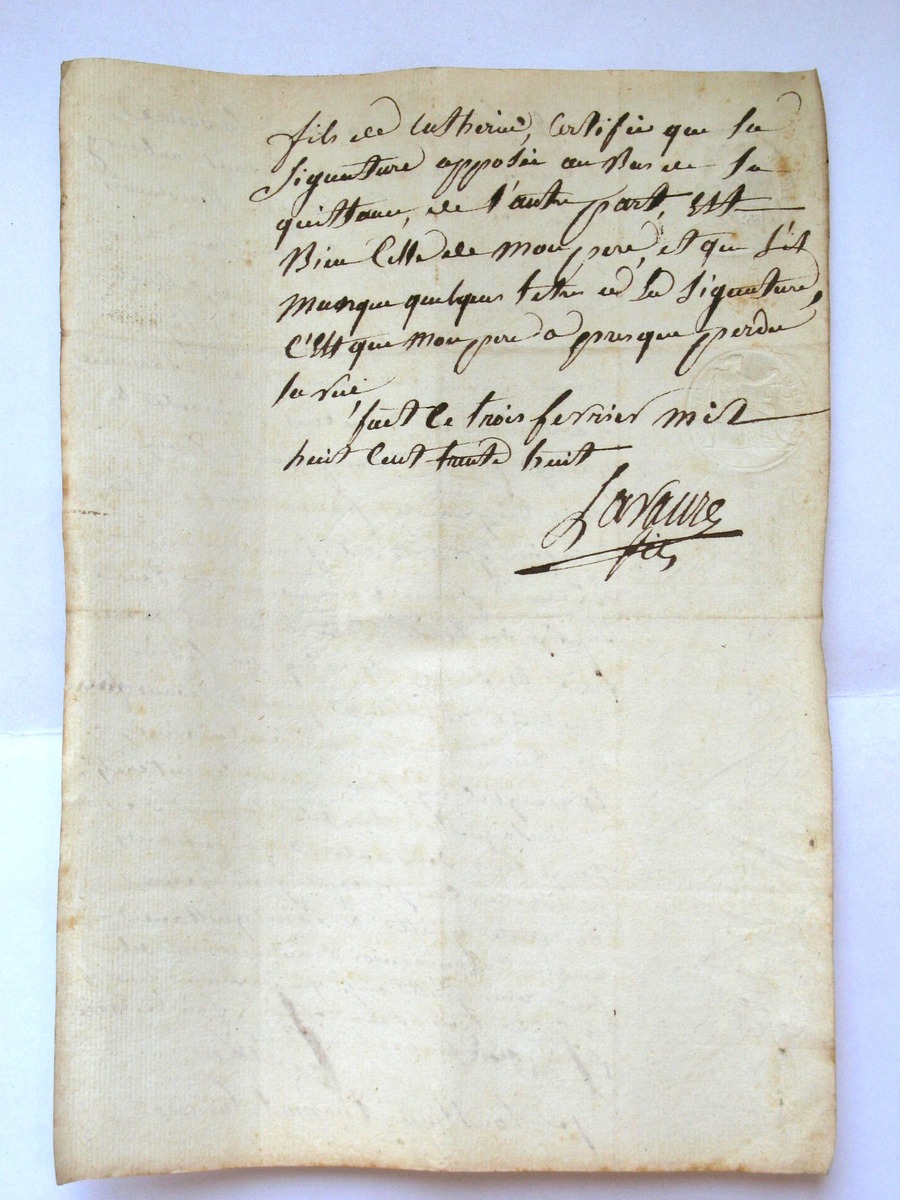 fils de Catherine, Certifie que la
Signature apposée au Bas de la
quittance, de l'autre part, Est
Bien Celle de mon pere, et que s'il
manque quelques letres à la Signature,
C'Est que mon pere a presque perdu
la vue
fait le trois fevrier mil
huit cent trante huit
Lavaure
fils